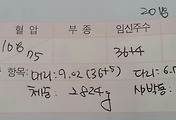 20 방
혈 압 부 종 임신주수
108/75 36+4
항목: 머리: 9.02 (36+5) 다리: 6.
체중: 2824g